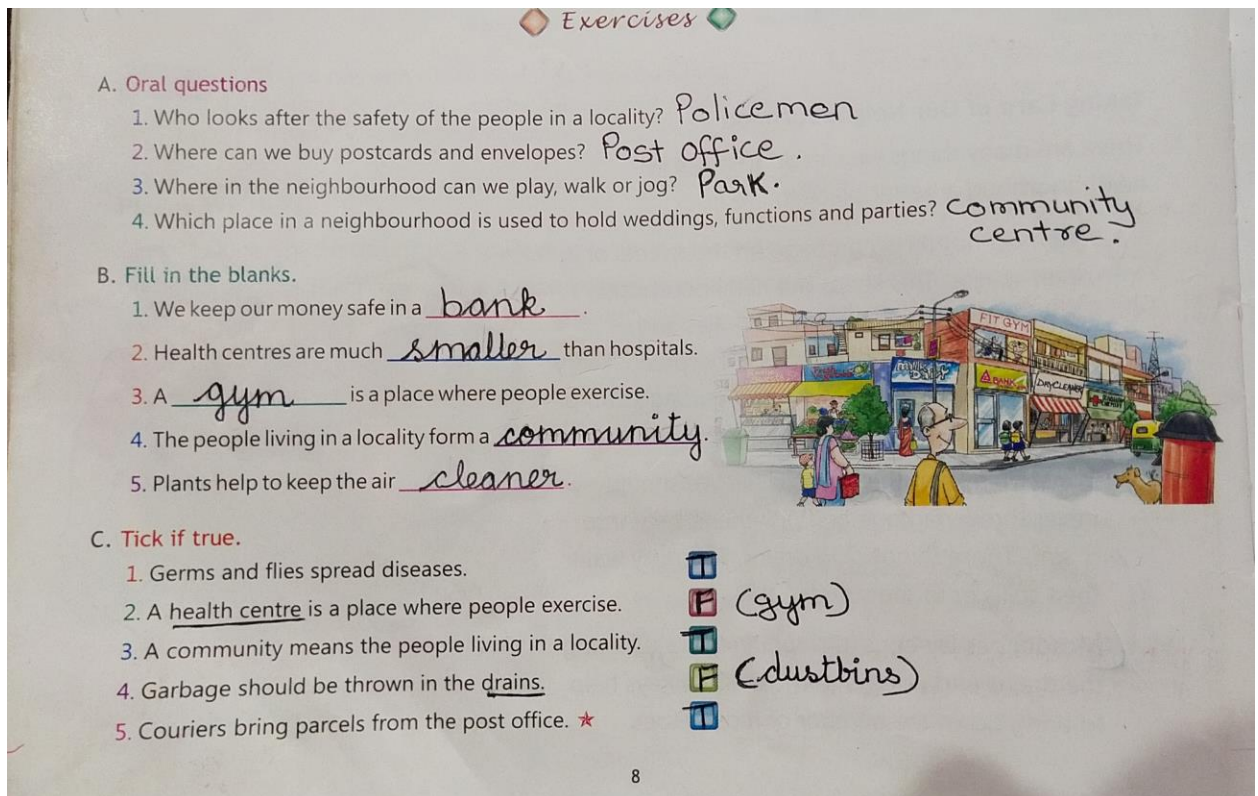 Exercises
A. Oral questions
1. Who looks after the safety of the people in a locality? Policemen
2. Where can we buy postcards and envelopes? Post office.
3. Where in the neighbourhood can we play, walk or jog? Park.
4. Which place in a neighbourhood is used to hold weddings, functions and parties? Community
centre.
B. Fill in the blanks.
1. We keep our money safe in a bank.
2. Health centres are much smaller than hospitals.
3. A gym is a place where people exercise.
4. The people living in a locality form a community.
5. Plants help to keep the air cleaner.
FIT GYM
BANK
DRYCLEANER
C. Tick if true.
1. Germs and flies spread diseases. T
2. A health centre is a place where people exercise. F (gym)
3. A community means the people living in a locality. T
4. Garbage should be thrown in the drains. F (dustbins)
5. Couriers bring parcels from the post office. ★ T
8